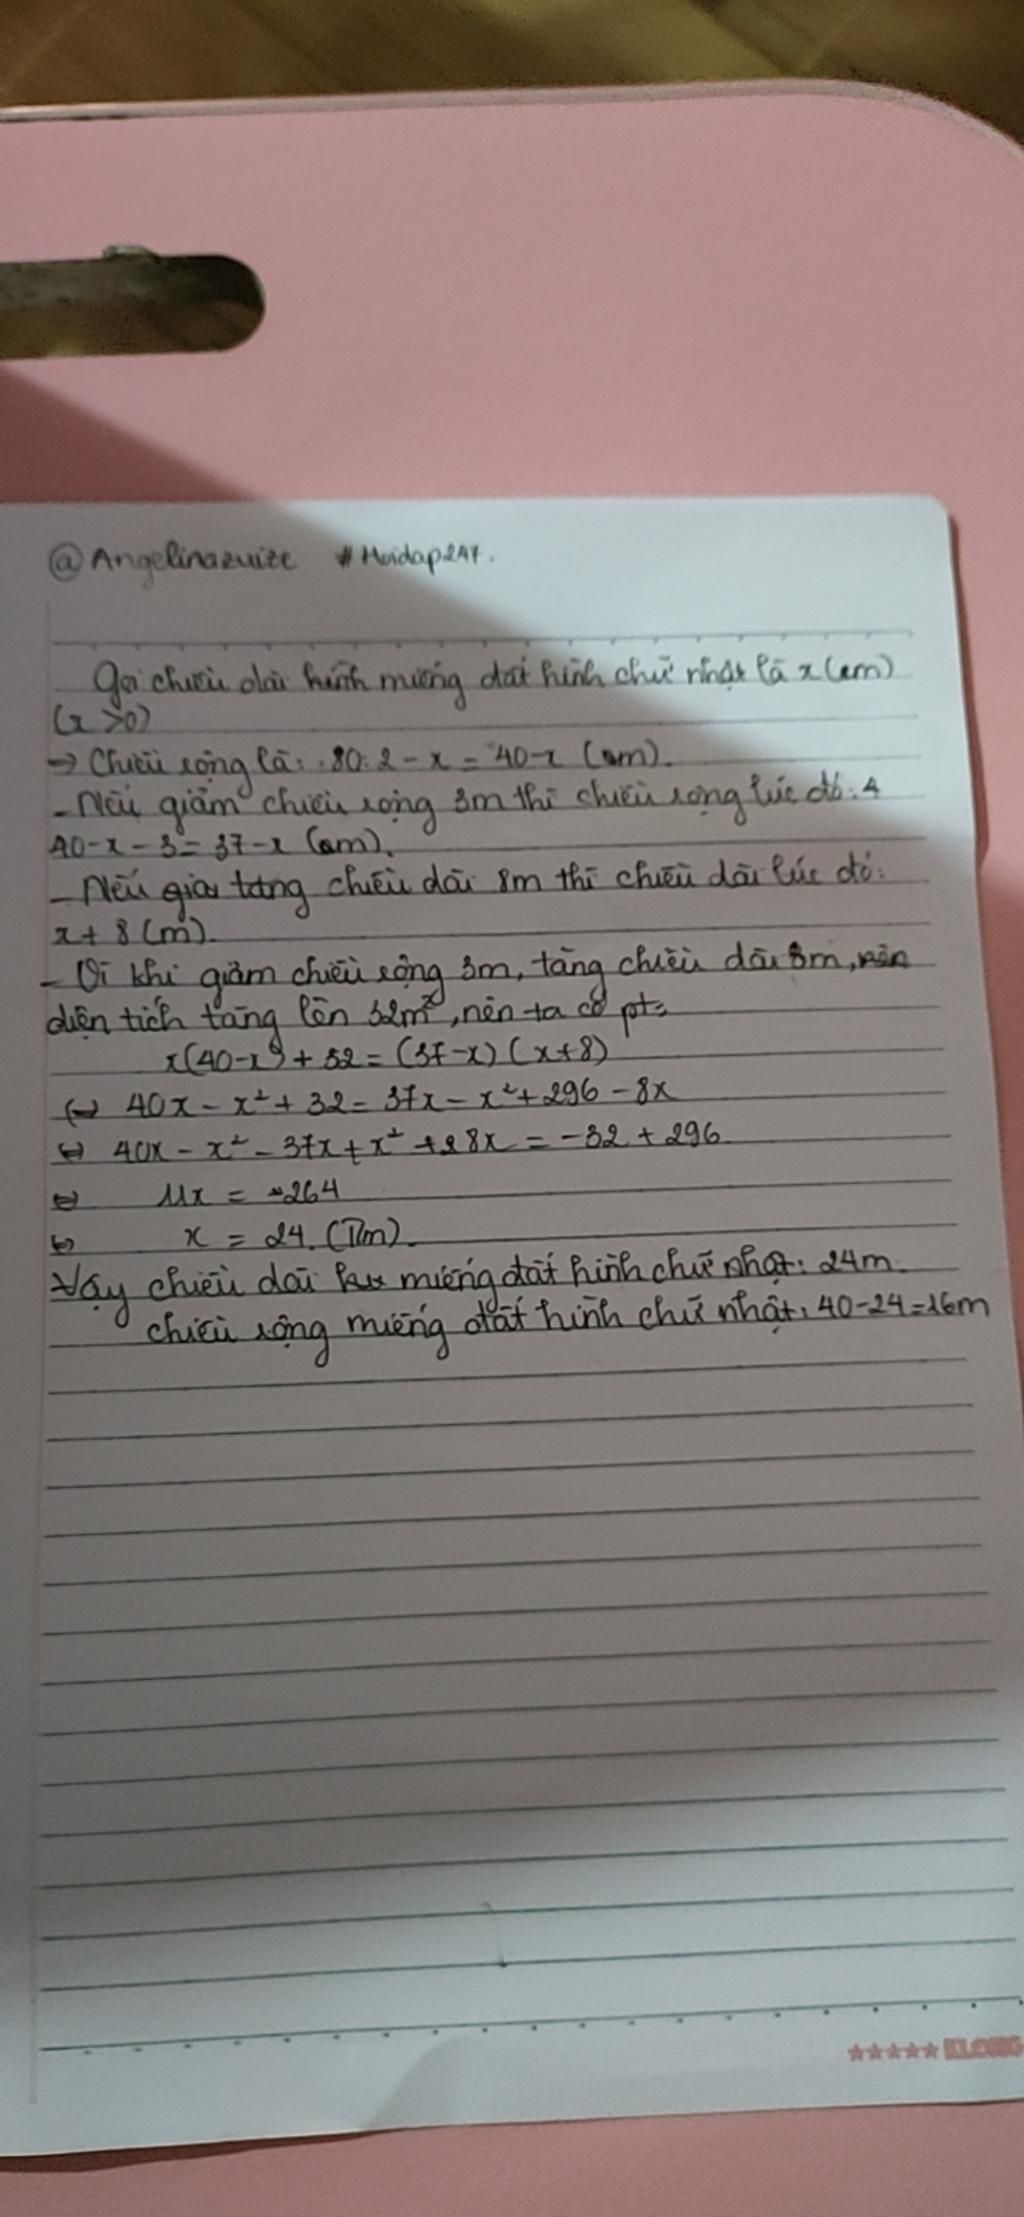 @Angelinazuize #Hoidap247.
Gọi chiều dài hình miếng đất hình chữ nhật là x (m)
(x >0)
→ Chiều rộng là: 80:2 - x = 40-x (m).
- Nếu giảm chiều rộng 3m thì chiều rộng lúc đó: 4
40-x-3=37-x (m).
- Nếu gia tăng chiều dài 8m thì chiều dài lúc đó:
x+8 (m).
- Vì khi giảm chiều rộng 3m, tăng chiều dài 8m, nên
diện tích tăng lên 32m², nên ta có pt:
x(40-x)+32=(37-x)(x+8)
(=) 40x - x² + 32 = 37x - x² + 296 - 8x
(=) 40x - x² - 37x + x² + 8x = -32 + 296
(=) 11x = 264
(=) x = 24. (Tm).
Vậy chiều dài miếng đất hình chữ nhật: 24m.
chiều rộng miếng đất hình chữ nhật: 40-24=16m
★★★★★ KLONG